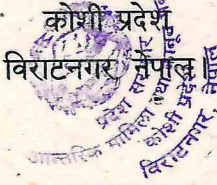 कोशी प्रदेश
विराटनगर, नेपाल।
प्रदेश सरकार
आन्तरिक मामिला
कोशी प्रदेश
विराटनगर, नेपाल